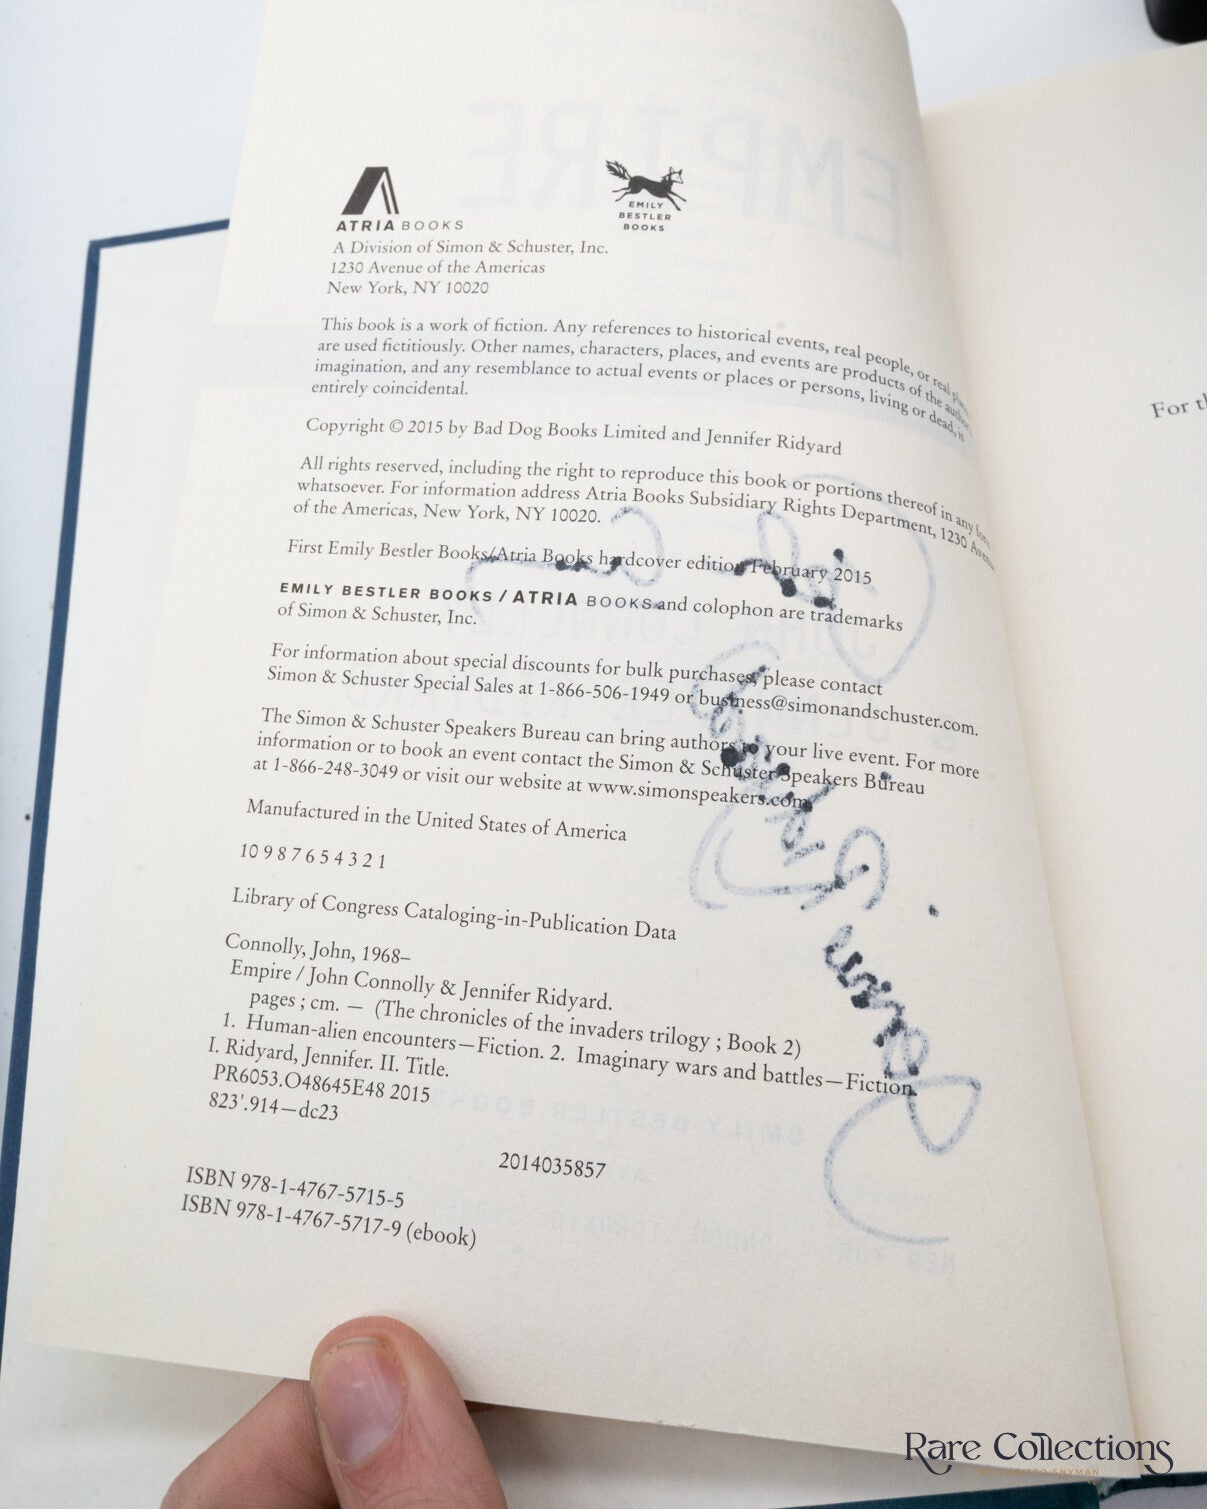 EMPIRE
ATRIA BOOKS
EMILY
BESTLER
BOOKS
A Division of Simon & Schuster, Inc.
1230 Avenue of the Americas
New York, NY 10020
This book is a work of fiction. Any references to historical events, real people, or real
are used fictitiously. Other names, characters, places, and events are products of the author's
imagination, and any resemblance to actual events or places or persons, living or dead, is
entirely coincidental.
Copyright © 2015 by Bad Dog Books Limited and Jennifer Ridyard
All rights reserved, including the right to reproduce this book or portions thereof in any
whatsoever. For information address Atria Books Subsidiary Rights Department, 1230
of the Americas, New York, NY 10020.
First Emily Bestler Books/Atria Books hardcover edition February 2015
EMILY BESTLER BOOKS / ATRIA BOOKS and colophon are trademarks
of Simon & Schuster, Inc.
For information about special discounts for bulk purchases, please contact
Simon & Schuster Special Sales at 1-866-506-1949 or business@simonandschuster.com.
The Simon & Schuster Speakers Bureau can bring authors to your live event. For more
information or to book an event contact the Simon & Schuster Speakers Bureau
at 1-866-248-3049 or visit our website at www.simonspeakers.com.
Manufactured in the United States of America
10 9 8 7 6 5 4 3 2 1
Library of Congress Cataloging-in-Publication Data
Connolly, John, 1968–
Empire / John Connolly & Jennifer Ridyard.
pages ; cm. — (The chronicles of the invaders trilogy ; Book 2)
1. Human-alien encounters—Fiction. 2. Imaginary wars and battles—Fiction.
I. Ridyard, Jennifer. II. Title.
PR6053.O48645E48 2015
823'.914—dc23
2014035857
ISBN 978-1-4767-5715-5
ISBN 978-1-4767-5717-9 (ebook)
For
Rare Collections